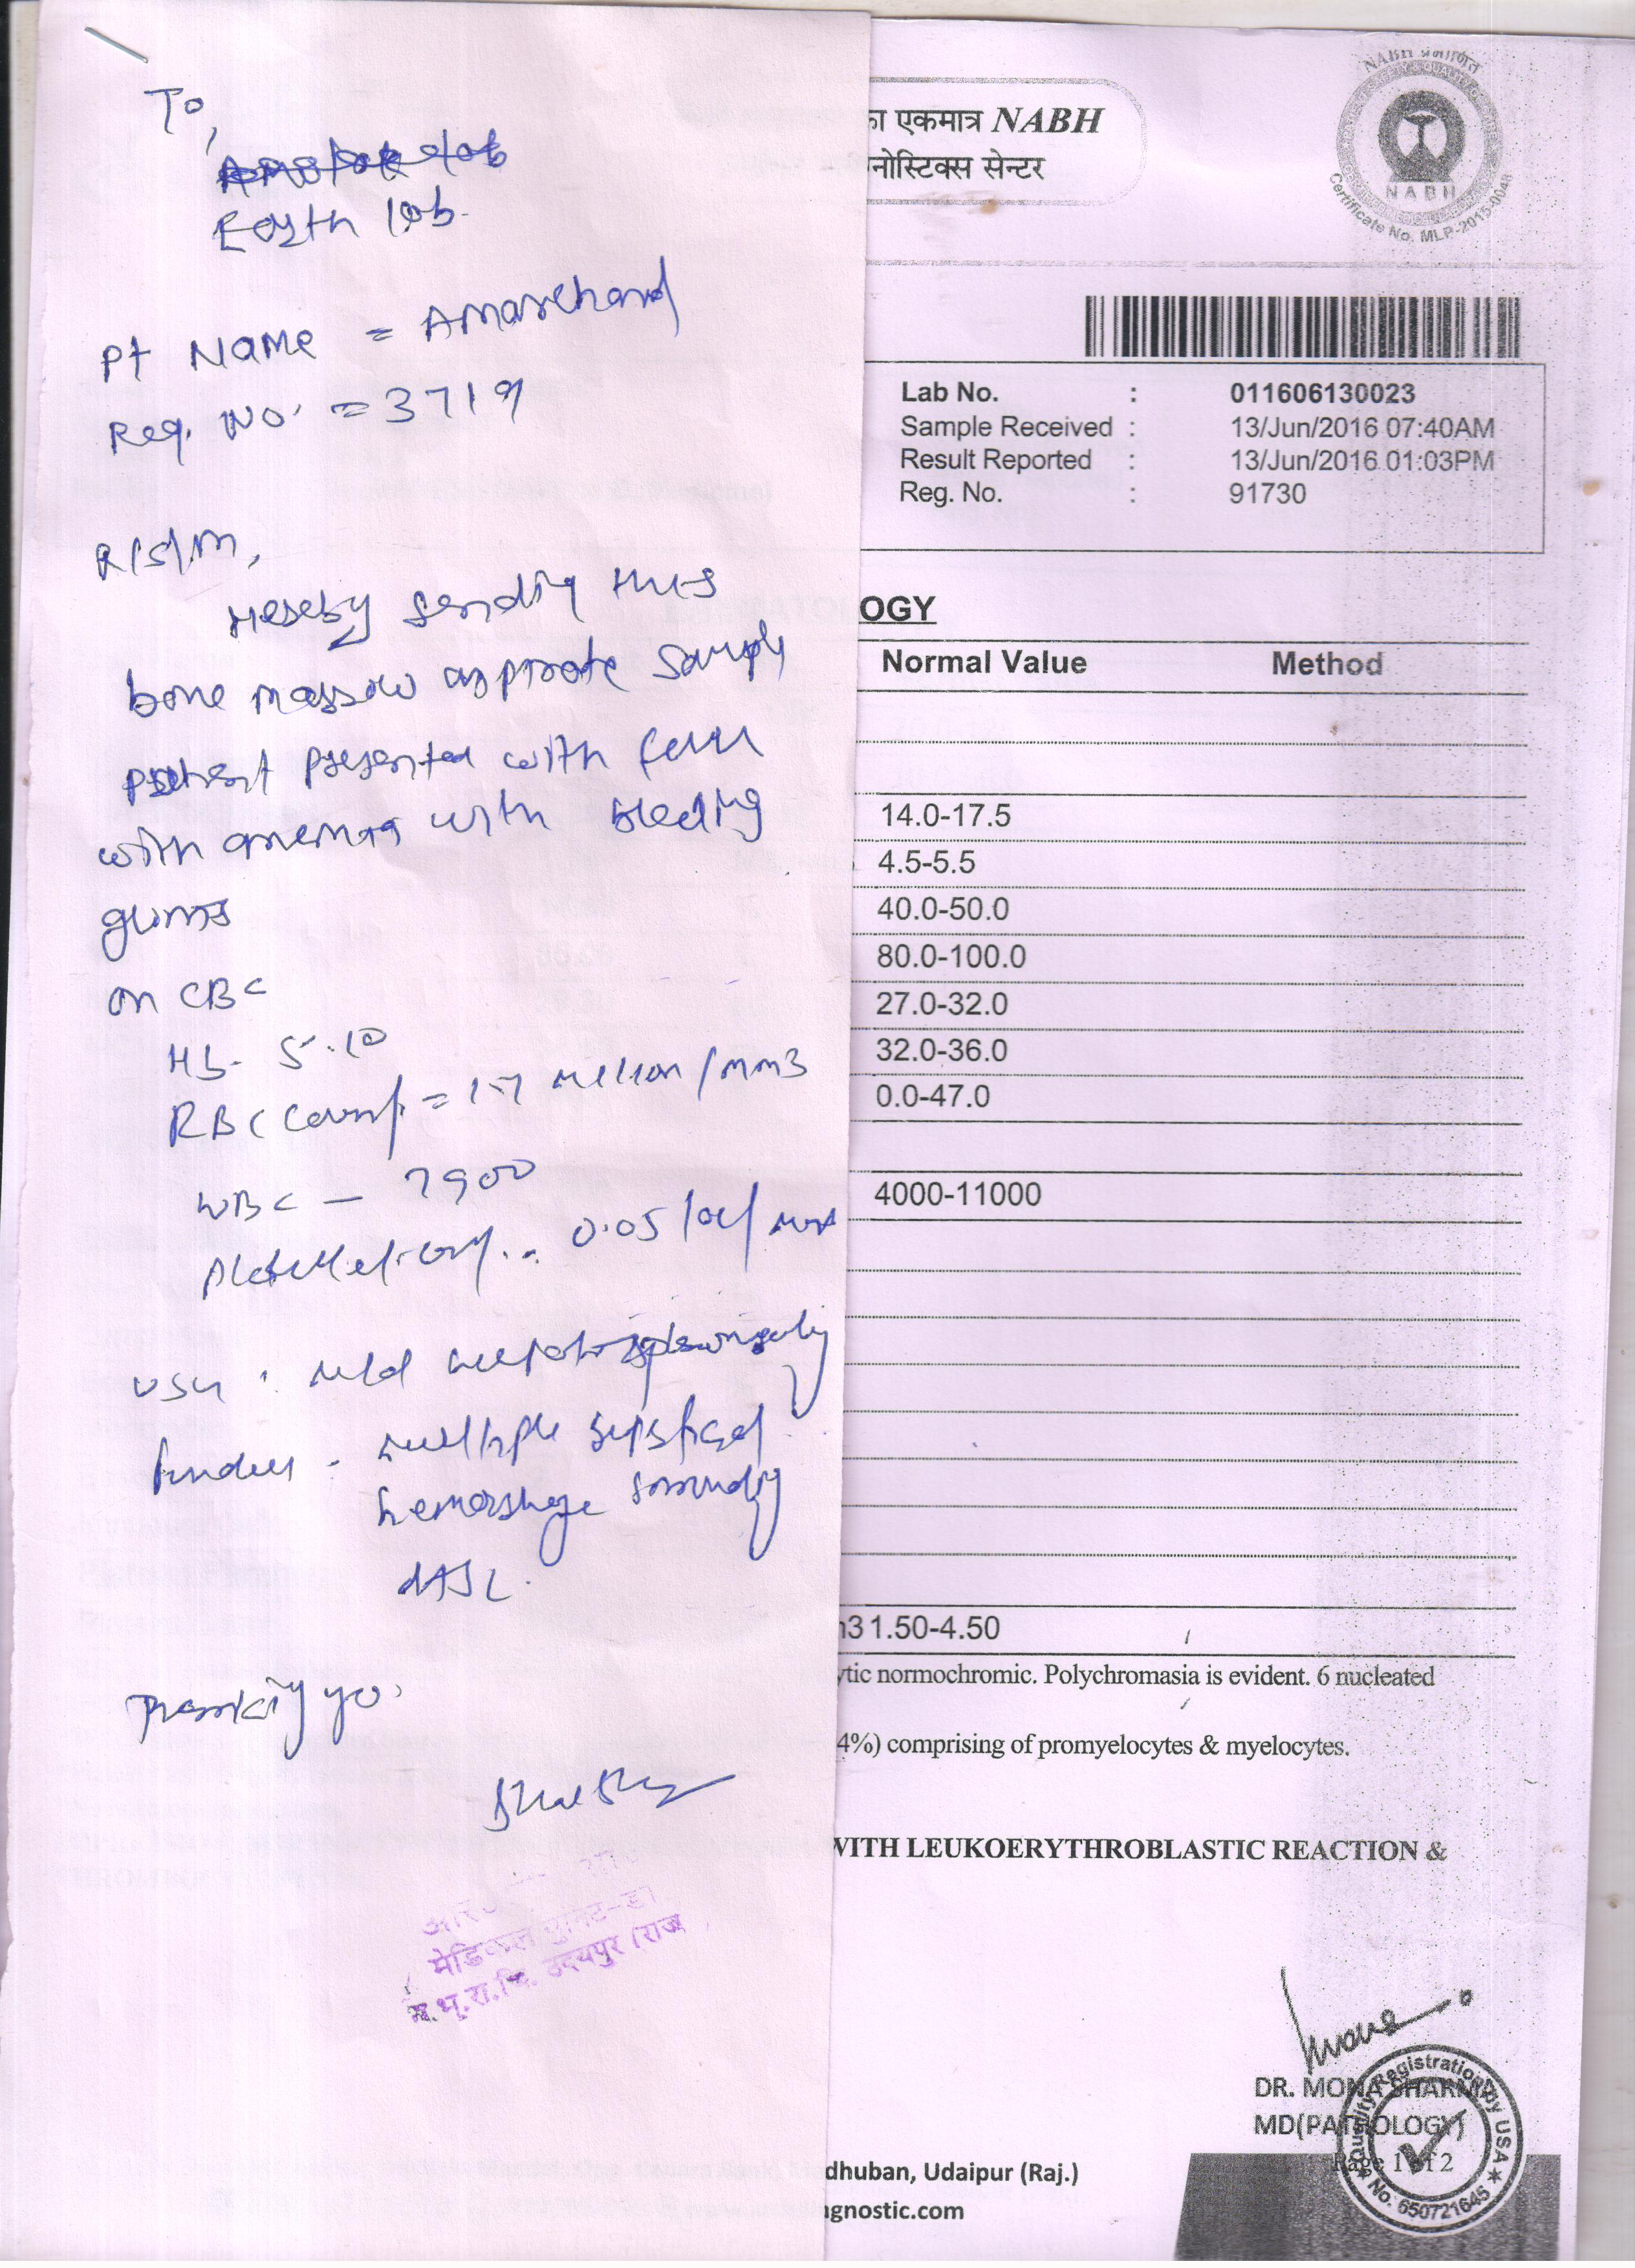 To,
Earth lab.
Pt Name = Amarchand
Reg. No. = 3719
R/S/M,
Hereby sending this
bone marrow aspirate sample
patient presented with fever
with anemia with bleeding
gums
on CBC
Hb- 5.10
RBC Count = 1.7 million/mm3
WBC - 7900
Platellet count - 0.05 lac/
USG : mild hepatosplenomegaly
fundus - multiple superficial
hemorrhage surrounding
Thanking you.
मेडिकल युनिट-डी
उदयपुर (राज
का एकमात्र NABH
नोस्टिक्स सेन्टर
NABH प्रमाणित
NABH
Certificate No. MLP-2015-0048
Lab No. : 011606130023
Sample Received : 13/Jun/2016 07:40AM
Result Reported : 13/Jun/2016 01:03PM
Reg. No. : 91730
OGY
Normal Value Method
14.0-17.5
4.5-5.5
40.0-50.0
80.0-100.0
27.0-32.0
32.0-36.0
0.0-47.0
4000-11000
31.50-4.50
ytic normochromic. Polychromasia is evident. 6 nucleated
4%) comprising of promyelocytes & myelocytes.
WITH LEUKOERYTHROBLASTIC REACTION &
DR. MONA SHARMA
MD(PATHOLOGY)
Page 1 of 2
Quality Registration by USA
No. 650721645
dhuban, Udaipur (Raj.)
gnostic.com